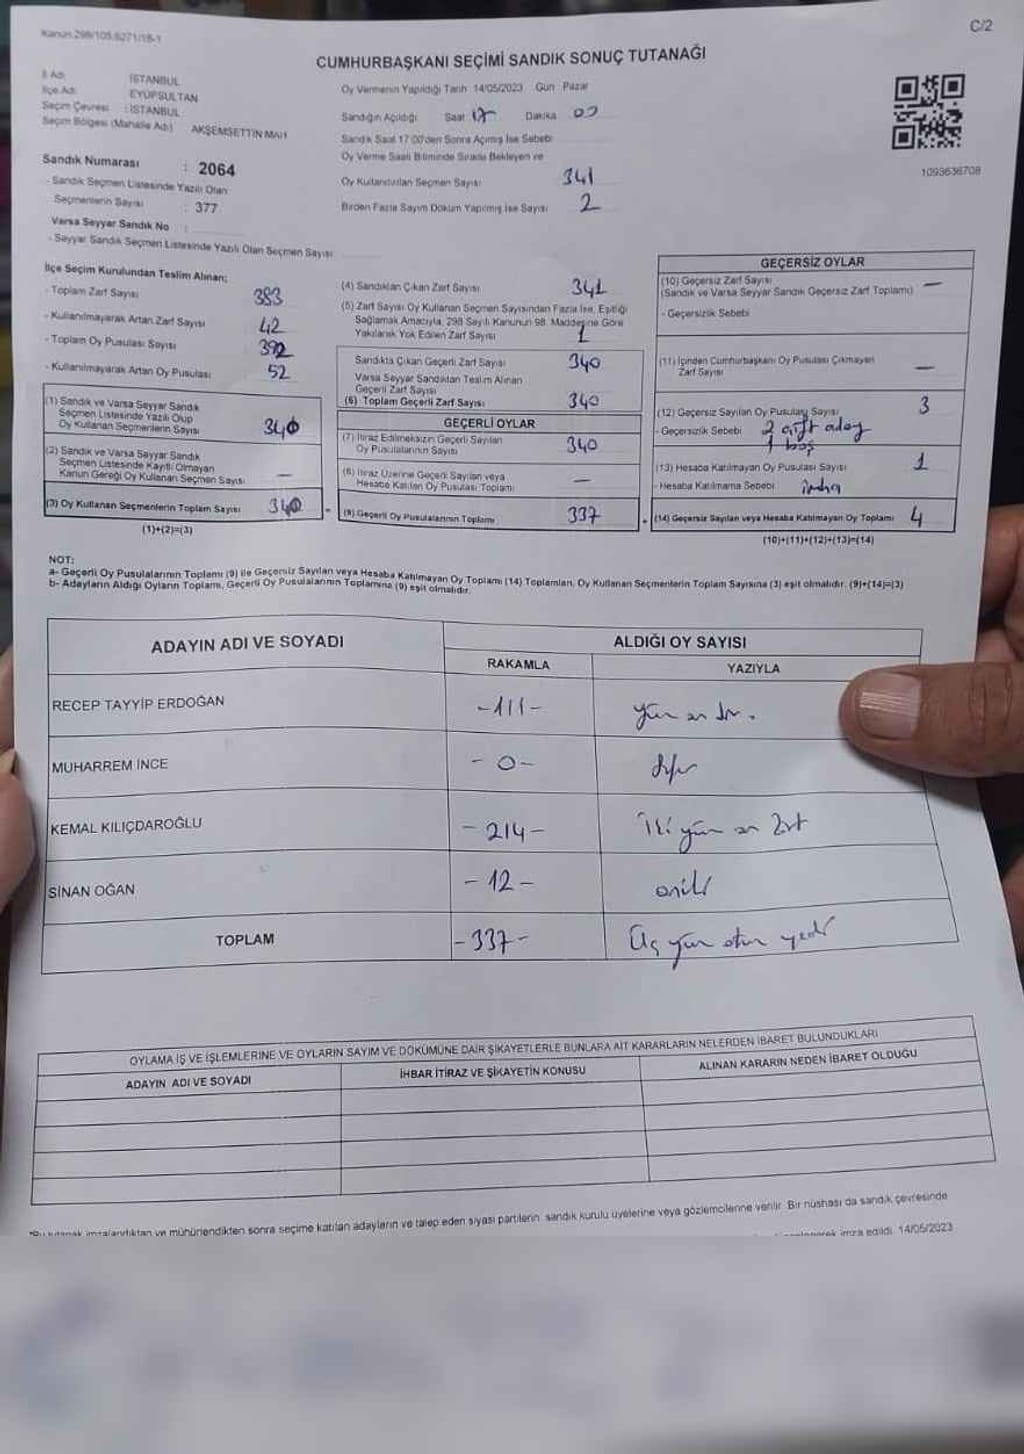 Kanun 298/105.6271/18-1
C/2
CUMHURBAŞKANI SEÇİMİ SANDIK SONUÇ TUTANAĞI
İl Adı İSTANBUL
İlçe Adı EYÜPSULTAN
Seçim Çevresi : İSTANBUL
Seçim Bölgesi (Mahalle Adı) AKŞEMSETTİN MAH
Sandık Numarası : 2064
- Sandık Seçmen Listesinde Yazılı Olan
Seçmenlerin Sayısı : 377
Varsa Seyyar Sandık No :
- Seyyar Sandık Seçmen Listesinde Yazılı Olan Seçmen Sayısı
Oy Vermenin Yapıldığı Tarih 14/05/2023 Gün Pazar
Sandığın Açıldığı Saat 17 Dakika
Sandık Saat 17:00'den Sonra Açılmış İse Sebebi
Oy Verme Saati Bitiminde Sırada Bekleyen ve
Oy Kullandırılan Seçmen Sayısı 341
Birden Fazla Sayım Döküm Yapılmış İse Sayısı 2
1093636708
İlçe Seçim Kurulundan Teslim Alınan;
- Toplam Zarf Sayısı 383
- Kullanılmayarak Artan Zarf Sayısı 42
- Toplam Oy Pusulası Sayısı 392
- Kullanılmayarak Artan Oy Pusulası 52
(1) Sandık ve Varsa Seyyar Sandık
Seçmen Listesinde Yazılı Olup
Oy Kullanan Seçmenlerin Sayısı 340
(2) Sandık ve Varsa Seyyar Sandık
Seçmen Listesinde Kayıtlı Olmayan
Kanun Gereği Oy Kullanan Seçmen Sayısı —
(3) Oy Kullanan Seçmenlerin Toplam Sayısı 340
(1)+(2)=(3)
(4) Sandıktan Çıkan Zarf Sayısı 341
(5) Zarf Sayısı Oy Kullanan Seçmen Sayısından Fazla İse, Eşitliği
Sağlamak Amacıyla, 298 Sayılı Kanunun 98. Maddesine Göre
Yakılarak Yok Edilen Zarf Sayısı 1
Sandıkta Çıkan Geçerli Zarf Sayısı 340
Varsa Seyyar Sandıktan Teslim Alınan
Geçerli Zarf Sayısı
(6) Toplam Geçerli Zarf Sayısı 340
GEÇERLİ OYLAR
(7) İtiraz Edilmeksizin Geçerli Sayılan
Oy Pusulalarının Sayısı 340
(8) İtiraz Üzerine Geçerli Sayılan veya
Hesaba Katılan Oy Pusulası Toplamı —
(9) Geçerli Oy Pusulalarının Toplamı 337
GEÇERSİZ OYLAR
(10) Geçersiz Zarf Sayısı
(Sandık ve Varsa Seyyar Sandık Geçersiz Zarf Toplamı) —
- Geçersizlik Sebebi
(11) İçinden Cumhurbaşkanı Oy Pusulası Çıkmayan
Zarf Sayısı —
(12) Geçersiz Sayılan Oy Pusulası Sayısı 3
- Geçersizlik Sebebi 2 çift aday
1 boş
(13) Hesaba Katılmayan Oy Pusulası Sayısı 1
- Hesaba Katılmama Sebebi imha
(14) Geçersiz Sayılan veya Hesaba Katılmayan Oy Toplamı 4
(10)+(11)+(12)+(13)=(14)
NOT:
a- Geçerli Oy Pusulalarının Toplamı (9) ile Geçersiz Sayılan veya Hesaba Katılmayan Oy Toplamı (14) Toplamları, Oy Kullanan Seçmenlerin Toplam Sayısına (3) eşit olmalıdır. (9)+(14)=(3)
b- Adayların Aldığı Oyların Toplamı, Geçerli Oy Pusulalarının Toplamına (9) eşit olmalıdır.
ADAYIN ADI VE SOYADI ALDIĞI OY SAYISI
RAKAMLA YAZIYLA
RECEP TAYYİP ERDOĞAN -111- yüz on bir.
MUHARREM İNCE -0- sıfır
KEMAL KILIÇDAROĞLU -214- iki yüz on dört
SİNAN OĞAN -12- oniki
TOPLAM -337- Üç yüz otuz yedi
OYLAMA İŞ VE İŞLEMLERİNE VE OYLARIN SAYIM VE DÖKÜMÜNE DAİR ŞİKAYETLERLE BUNLARA AİT KARARLARIN NELERDEN İBARET BULUNDUKLARI
ADAYIN ADI VE SOYADI İHBAR İTİRAZ VE ŞİKAYETİN KONUSU ALINAN KARARIN NEDEN İBARET OLDUĞU
*Bu tutanak imzalandıktan ve mühürlendikten sonra seçime katılan adayların ve talep eden siyasi partilerin sandık kurulu üyelerine veya gözlemcilerine verilir. Bir nüshası da sandık çevresinde
imza edildi. 14/05/2023